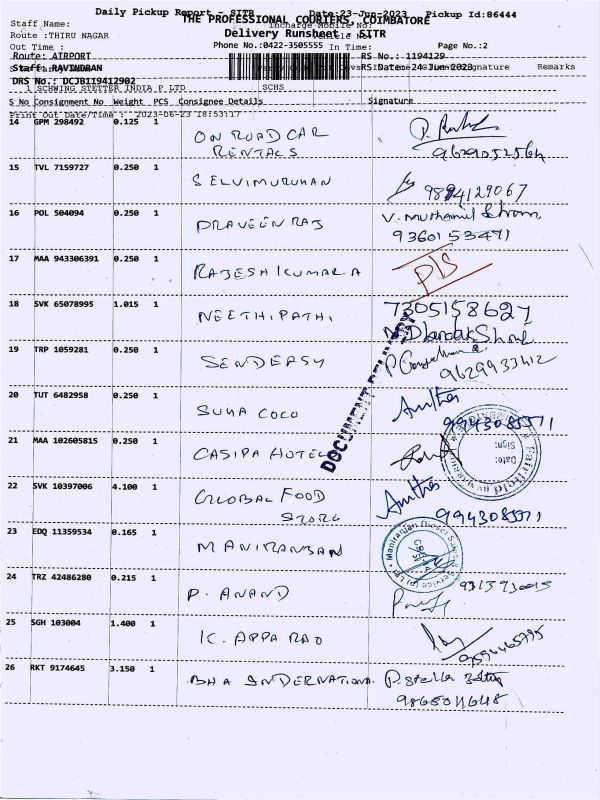 Daily Pickup Report - SITR Date:23-Jun-2023 Pickup Id:86444
THE PROFESSIONAL COURIERS, COIMBATORE
Staff Name: Incharge Mobile No:
Route :THIRU NAGAR Delivery Runsheet - SITR
Out Time : Phone No.:0422-3505555 In Time: Page No.:2
Route: AIRPORT RS No.: 1194129
Staff: RAVINDRAN RS Date: 24-Jun-2023 Signature Remarks
DRS No.: DCJB119412902
1 SCHWING STETTER INDIA P LTD SCHS
S No Consignment No Weight PCS Consignee Details Signature
Print Out Date/Time : 2023-06-23 18:53:17
14 GPM 298492 0.125 1 ON ROAD CAR
RENTALS
9629052564
15 TVL 7159727 0.250 1 SELVIMURUHAN
9894129067
16 POL 504094 0.250 1 PRAVEEN RAJ V. Muthamil
9360153471
17 MAA 943306391 0.250 1 RAJESH KUMAR.A D/S
18 SVK 65078995 1.015 1 NEETHIPATHI 7305158627
19 TRP 1059281 0.250 1 SENDEASY
9629933412
DOCUMENT DELIVERY
20 TUT 6482958 0.250 1 SUHA COCO Anitha
9943085571
21 MAA 102605815 0.250 1 CASIPA HOTEL
Date:
Sign:
22 SVK 10397006 4.100 1 GLOBAL FOOD Anitha
STORE 9943085571
23 EDQ 11359534 0.165 1 MANIRANJAN
Maniranjan Diesel Sales & Service (P) Ltd
24 TRZ 42486280 0.215 1 P. ANAND
25 SGH 103004 1.400 1 K. APPA RAO
26 RKT 9174645 3.150 1 BHA INTERNATIONA P. Stella
9865011648